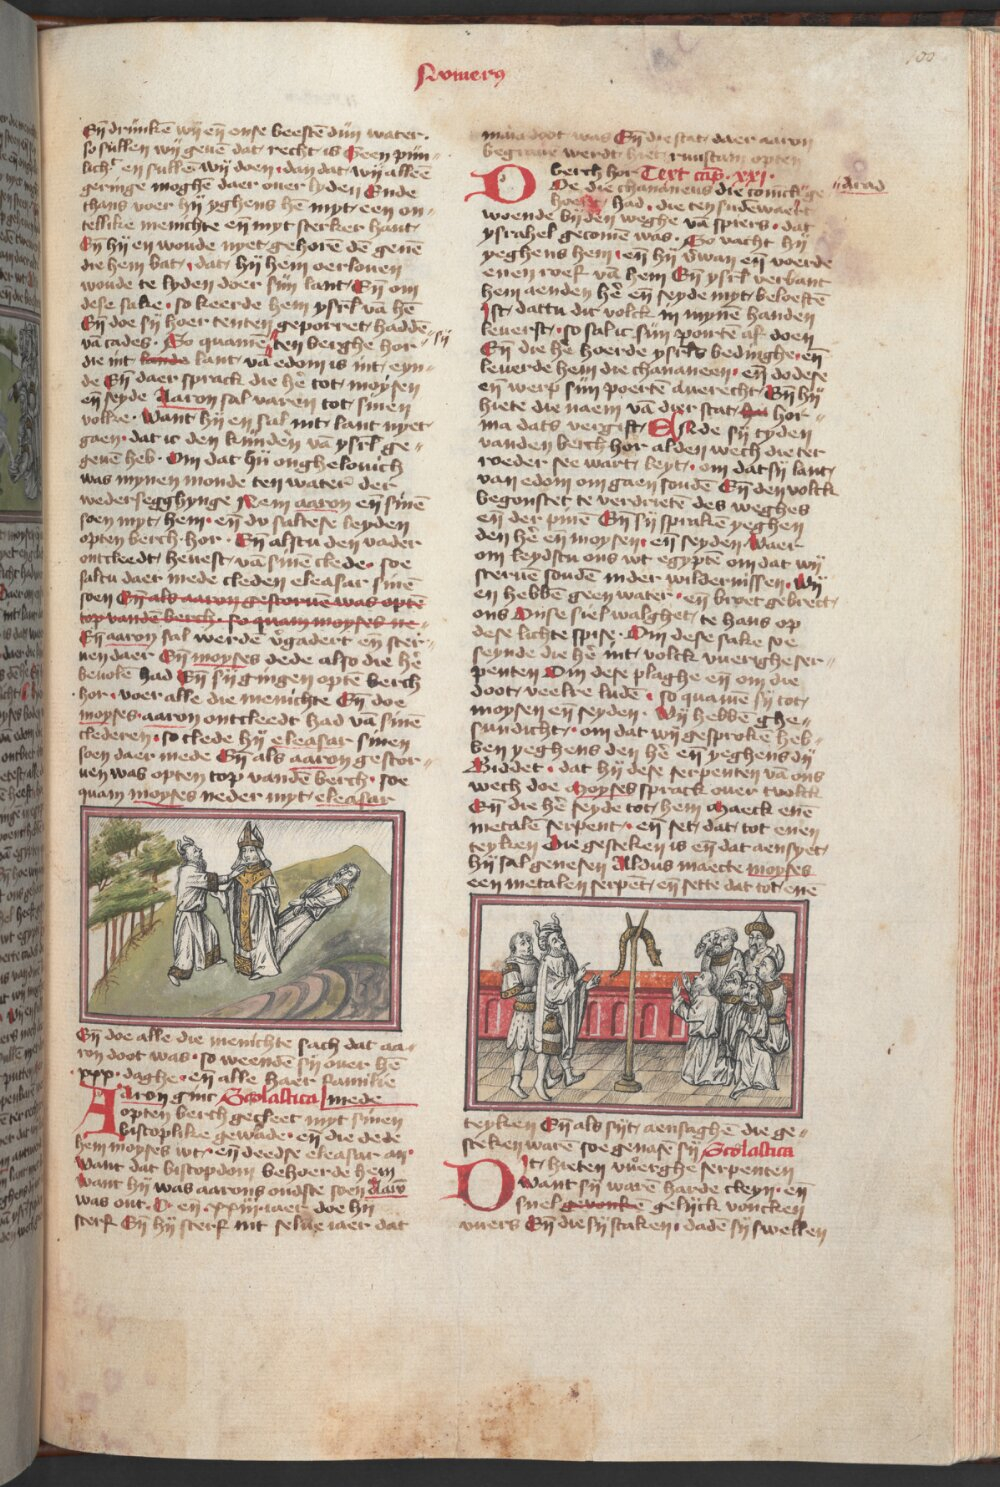 Numerus
100
En̄ drinkē wij en̄ onse beestē dijn water·
so sullen wij gevē dat recht is Geen pijn=
lichᵗ en sullē wij doen· dan dat wij alleē
geringe moghē daer over lyden Ende
thans voer hij yghens hē myt een on=
tellike menichte en̄ myt sterker hant
En̄ hij en woude nyet gehorē dē genē
die hem bat, dat hij hem oerloven
woude te lyden doer sijn lant, En̄ om
dese sake· so keerde hem ysrl̄ vā hē
En̄ doe sij hoer tenten geporret haddē
vā cades· So quamē ten berghe hor= sij
die int lande lant vā edom is int eyn=
de En̄ daer sprack die hē tot moysen
en̄ seyde Aaron sal varen tot sinen
volke· Want hij en sal int lant nyet
gaen· dat ic den kinden vā ysrl̄ ge=
gevē heb· Om dat hij onghelovich
was mynen monde ten water der
wedersegghynge Nem aaron en̄ sinē
soen myt hem· en̄ du saltese leyden
opten berch hor· En̄ alstu den vader
ontcleedt hevest vā sinē clede· soe
saltu daer mede cleden eleasar sinē
soen En̄ als aaron gestorvē was optē
top vandē berch· so quam moyses ne=
En̄ aaron sal werdē v̄gadert en̄ ster=
ven daer En̄ moyses dede also die hē
bevolē had En̄ sij gingen optē berch
hor· voer alle die menichte En̄ doe
moyses· aaron ontcleedt had vā sinē
clederen· so clede hij eleasar sinen
soen daer mede En̄ als aaron gestor=
ven was opten top vandē berch· soe
quam moyses neder myt eleasar
En̄ doe alle die menichte sach dat aa=
ron doot was· so weendē sij over hē
xxx· daghe· en̄ alle haer familie
Aaron ginc Scolastica mede
opten berch gecleet myt sinen
bisscoplike gewāde· en̄ die dede
hem moyses wt· en̄ deedse eleasar an·
Want dat biscopdom behoerde hem
Want hij was aarons oudste soen Aarō
was out· C· en̄ ·xxiij· iaer doe hij
sterf En̄ hij sterf int selve iaer dat
maria doot was En̄ die stat daer aaron
begrave werdt hiet
berch hor Text cap· xxi·
DOe die chananeus die coninck ge= arad
hoert had· die ten sudewaert
woende bij den weghe vā spiers· dat
ysrahel gecomē was· So vacht hij
yeghens hem· en̄ hij v̄wan en̄ voerde
enen roef vā hem En̄ ysrl̄ verbant
hem aenden hē en̄ seyde myt beloeftē
Ist dattu dit volck in mynē handen
leverst· so sal ic sijn poertē af doen
En̄ die hē hoerde ysrl̄s bedinghe· en̄
leverde hem die chananeen· en̄ dodese
en̄ werp sijn poertē averecht En̄ hij
hiete die naem vā dier stat hor=
ma dats vergift, Ende sij tyden
vanden berch hor alden wech die ter
roeder see wart leyt· om dat sij lant
van edom om gaen soudē En̄ den volck
begonstet te verdrietē des weghes
en̄ der pinē En̄ sij sprakē yeghen
den hē en̄ moysen· en̄ seyden· Waer
om leydstu ons wt egyptē om dat wij
stervē soudē inder wildernissen· Wij
en hebbē geen water· en̄ broet gebrect
ons Onse siel walghet te hans op
dese lichte spise· Om dese sake soe
seynde die hē int volck vuerghe ser=
penten Om dese plaghe en̄ om die
doot veelre ludē· so quamē sij tot
moysen en̄ seyden· Wij hebbē ghe=
sundicht· om dat wij gesprokē heb=
ben yeghens den hē en̄ yeghens dij
Biddet· dat hij dese serpenten vā ons
wech doe Moyses sprack over tvolck
En̄ die hē seyde tot hem Maeck enē
metalē serpent· en̄ set dat tot enen
teyken Die gesteken is en̄ dat aensyet
hij sal genesen Aldus maecte moyses
een metalen serpēt en̄ sette dat tot enē
teyken En̄ als sijt aensaghē die ge=
steken warē soe genasē sij Scolastica
DIt hieten vuerghe serpenten
Want sij warē harde cleyn· en̄
snel gevonkē gelijck voncken
vuers En̄ die sij staken· dadē sij swellen